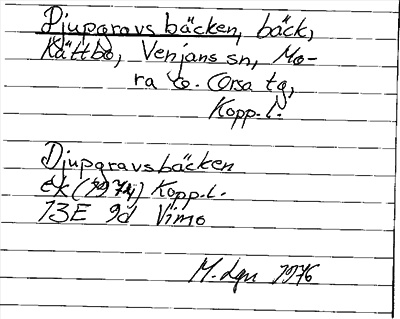 Djupgravsbäcken, bäck,
Kättbo, Venjans sn, Mo-
ra o. Orsa tg,
Kopp.l.
Djupgravsbäcken
ek (1974) Kopp.l.
13E 9d Vimo
M.dgn 1976